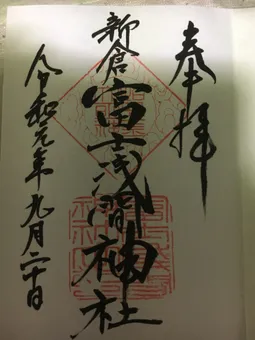 奉拝
新倉富士浅間神社
令和元年九月二十日